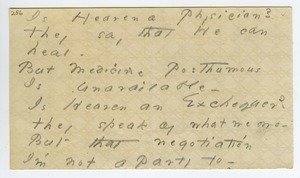 286
Is Heaven a Physician?
They say that He can
heal.
But Medicine Posthumous
Is unavailable—
Is Heaven an Exchequer?
They speak of what we owe—
But that negotiation
I'm not a Party to—